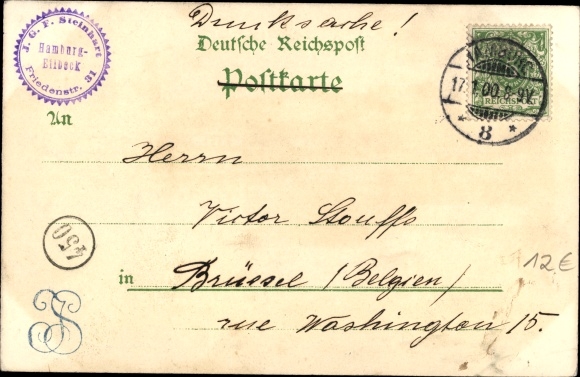 Drucksache!
J. G. F. Steinhart
Hamburg-
Eilbeck
Friedenstr. 31
Deutsche Reichspost
Postkarte
HAMBURG
17.1.00.8-9V.
REICHSPOST
* 8 *
An
Herrn
Victor Stouffs
450
in Brüssel (Belgien)
12€
rue Washington 15.